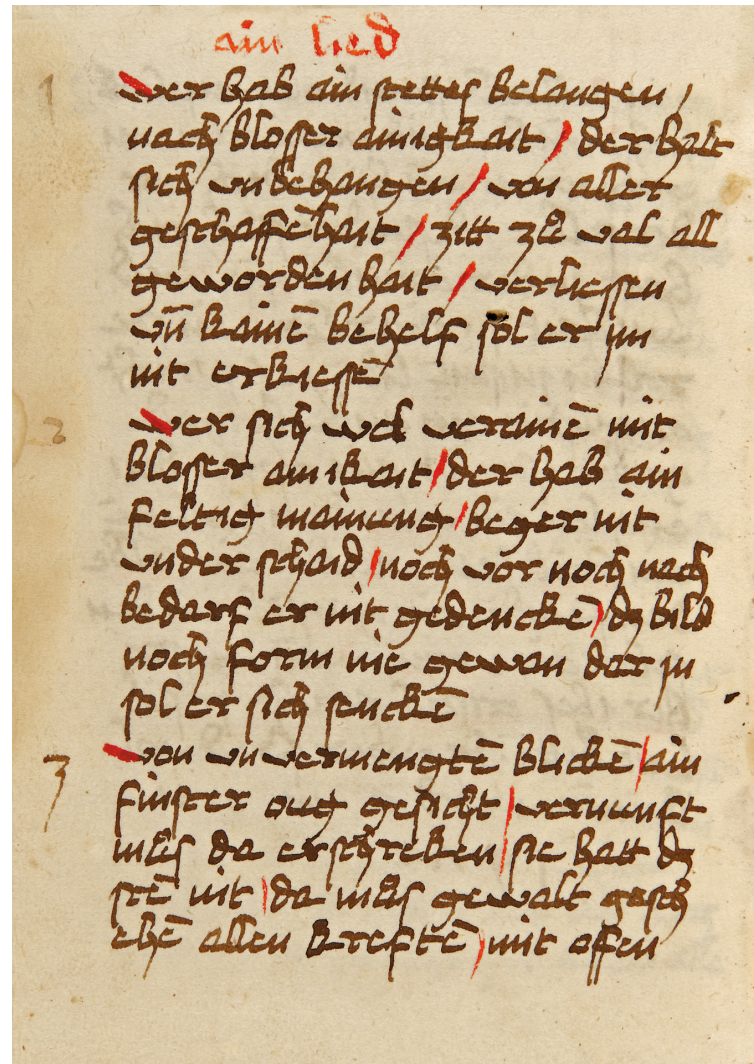 ain lied
1 Wer hab ain stettes belangen /
nach blosser ainigkait / der halt
sich vnbehangen / von aller
geschaffēhait / zitt zů val all
gewordenhait / verliessen
vn̄ kainē behelf sol er im
nit erkiessē
2 Wer sich wel verainē mit
blosser ainikait / der hab ain
feltig mainung / beger nit
vnder schaid / noch vor noch nach
bedarf er nit gedenckē / dz bild
noch form nie gewan dar jn
sol er sich senckē
3 Von vnvermengtē blickē / ain
finster oug gesicht / vernunft
můs da erschreken / sie hatt dz
stē nit / da můs gewalt gesch
ehē allen kreftē / mit offen